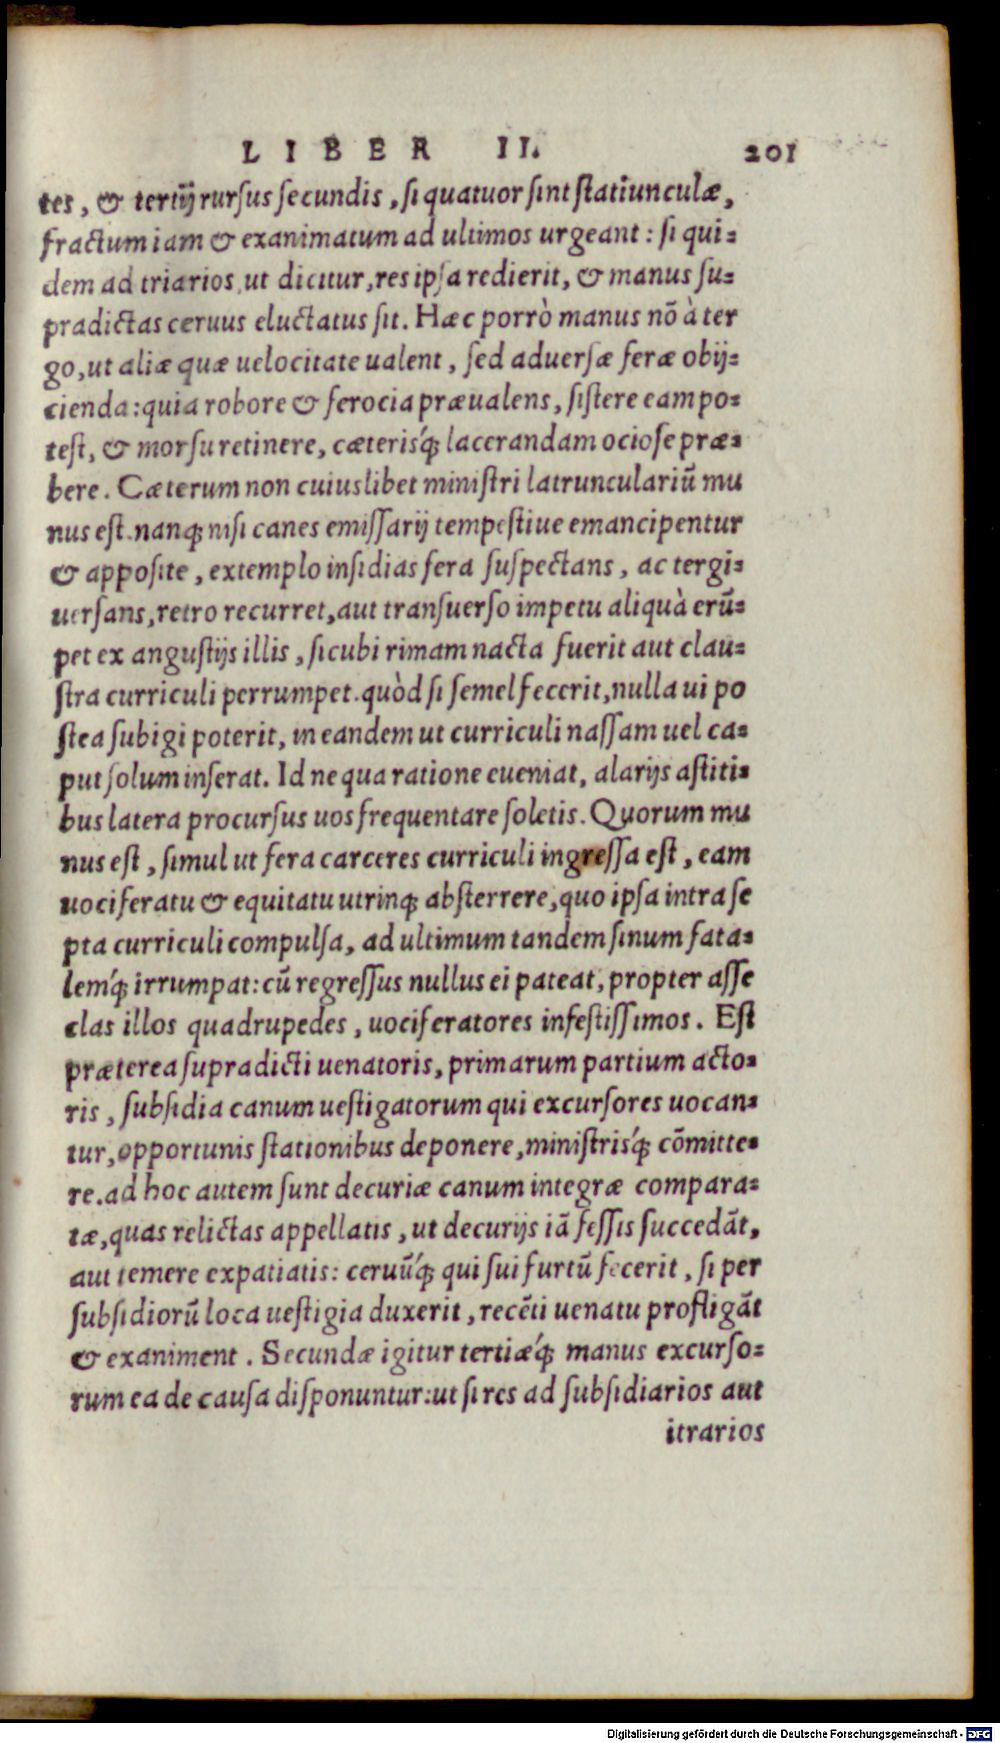 LIBER II. 201
tes, & tertij rursus secundis, si quatuor sint statiunculæ,
fractum iam & exanimatum ad ultimos urgeant: si qui=
dem ad triarios, ut dicitur, res ipsa redierit, & manus su=
pradictas ceruus eluctatus sit. Hæc porrò manus nõ à ter
go, ut aliæ quæ uelocitate ualent, sed aduersæ feræ obij=
cienda: quia robore & ferocia præualens, sistere eam po=
test, & morsu retinere, cæterisq́; lacerandam ociose præ=
bere. Cæterum non cuiuslibet ministri latrunculariũ mu
nus est. nanq; nisi canes emissarij tempestiue emancipentur
& apposite, extemplo insidias fera suspectans, ac tergi=
uersans, retro recurret, aut transuerso impetu aliquà erũ=
pet ex angustijs illis, sicubi rimam nacta fuerit aut clau=
stra curriculi perrumpet. quòd si semel fecerit, nulla ui po
stea subigi poterit, in eandem ut curriculi nassam uel ca=
put solum inserat. Id ne qua ratione eueniat, alarijs astiti=
bus latera procursus uos frequentare soletis. Quorum mu
nus est, simul ut fera carceres curriculi ingressa est, eam
uociferatu & equitatu utrinq; absterrere, quo ipsa intra se
pta curriculi compulsa, ad ultimum tandem sinum fata=
lemq́; irrumpat: cũ regressus nullus ei pateat, propter asse
clas illos quadrupedes, uociferatores infestissimos. Est
præterea supradicti uenatoris, primarum partium acto=
ris, subsidia canum uestigatorum qui excursores uocan=
tur, opportunis stationibus deponere, ministrisq́; cõmitte=
re. ad hoc autem sunt decuriæ canum integræ compara=
tæ, quas relictas appellatis, ut decurijs iã fessis succedãt,
aut temere expatiatis: ceruũq́; qui sui furtũ fecerit, si per
subsidiorũ loca uestigia duxerit, recẽti uenatu profligãt
& exaniment. Secundæ igitur tertiæq́; manus excurso=
rum ea de causa disponuntur: ut si res ad subsidiarios aut
itrarios
Digitalisierung gefördert durch die Deutsche Forschungsgemeinschaft - DFG